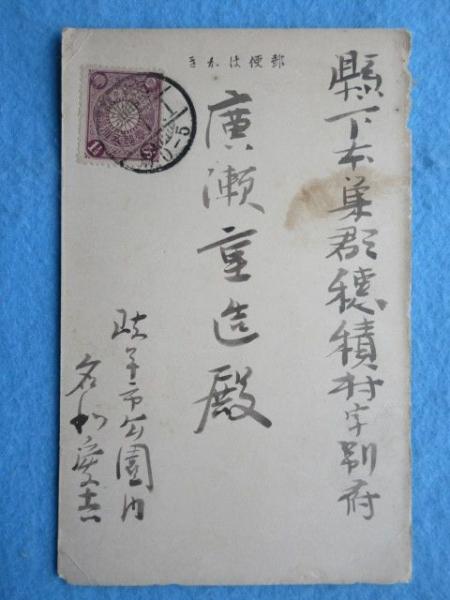 郵便はかき
縣下本巣郡穂積村字別府
廣瀬重造殿
岐阜市公園内
名和愛吉